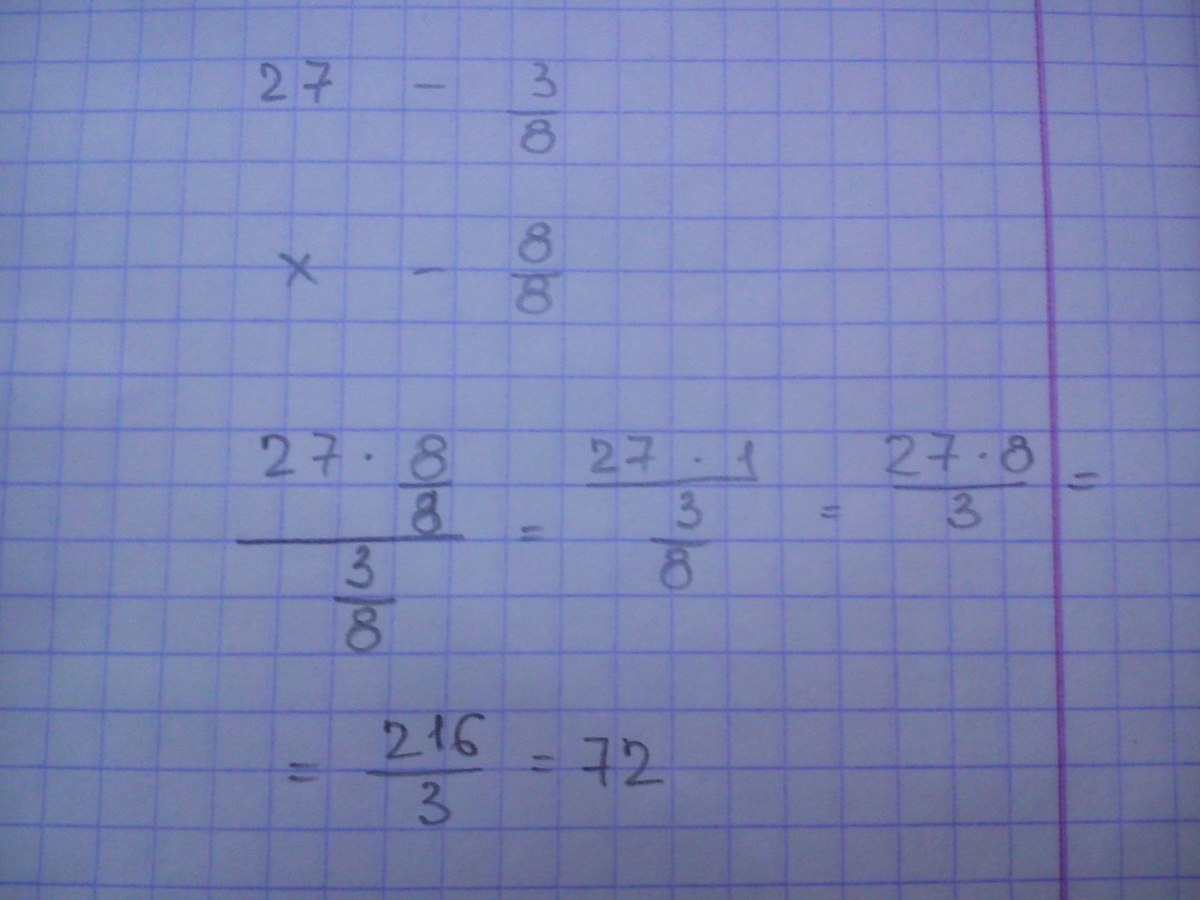 27 - 3/8
x - 8/8
(27 · 8/8)/(3/8) = (27 · 1)/(3/8) = (27 · 8)/3 =
= 216/3 = 72